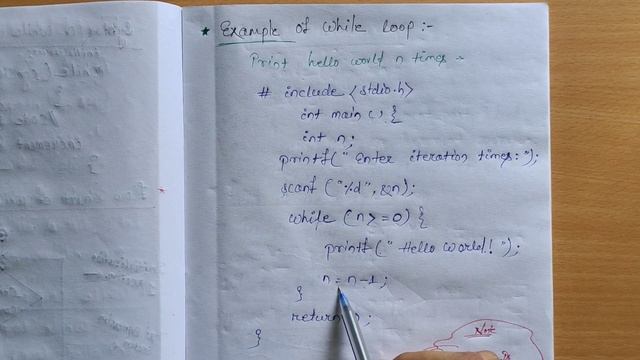 ★ Example of while loop :-
Print hello world n times :-
# include <stdio.h>
int main () {
int n;
printf(" Enter iteration times: ");
scanf ("%d", &n);
while (n>=0) {
printf (" Hello world! ");
n = n-1;
}
return ;
}
Note